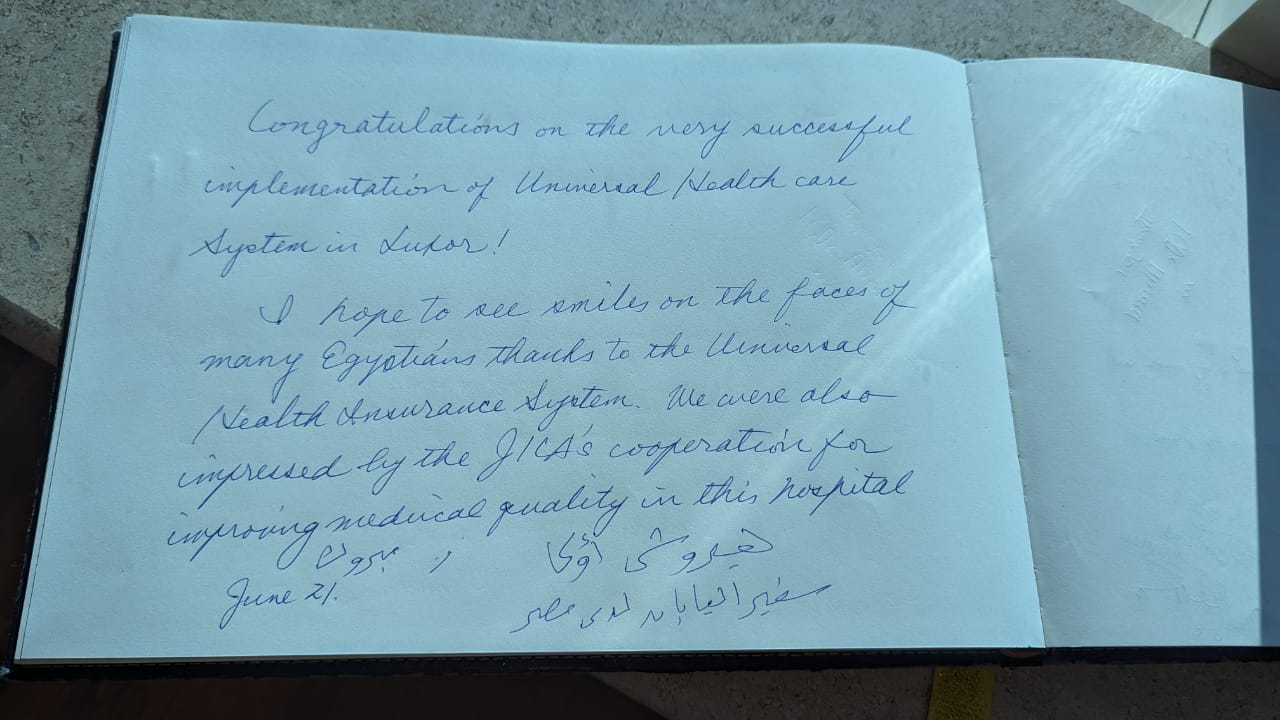 Congratulations on the very successful
implementation of Universal Health care
System in Luxor!
I hope to see smiles on the faces of
many Egyptians thanks to the Universal
Health Insurance System. We were also
impressed by the JICA's cooperation for
improving medical quality in this hospital
هيروشي أوكا
June 21.
سفير اليابان لدى مصر